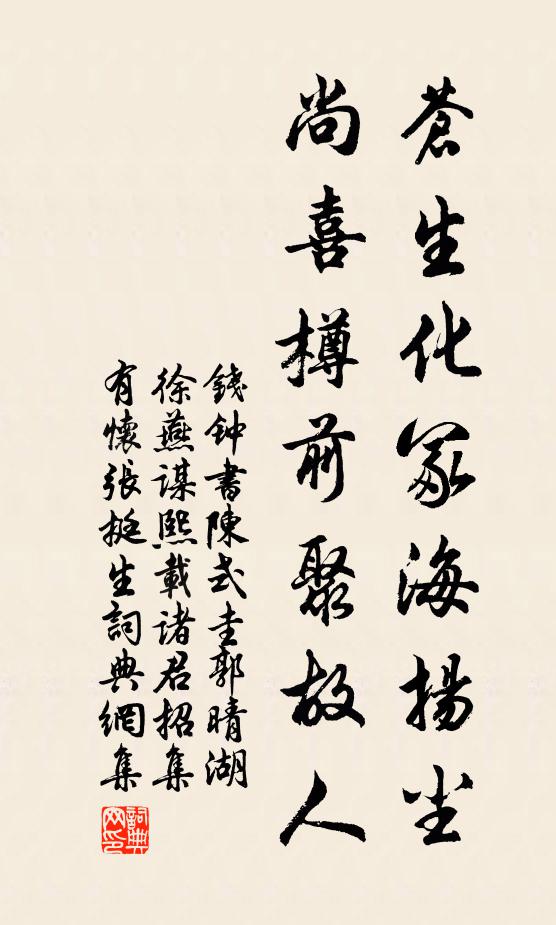 蒼生化冢海揚尘
尚喜樽前聚故人
錢钟書陳式圭郭晴湖
徐燕謀熙載诸君招集
有懷張挺生詞典網集
詞典网印